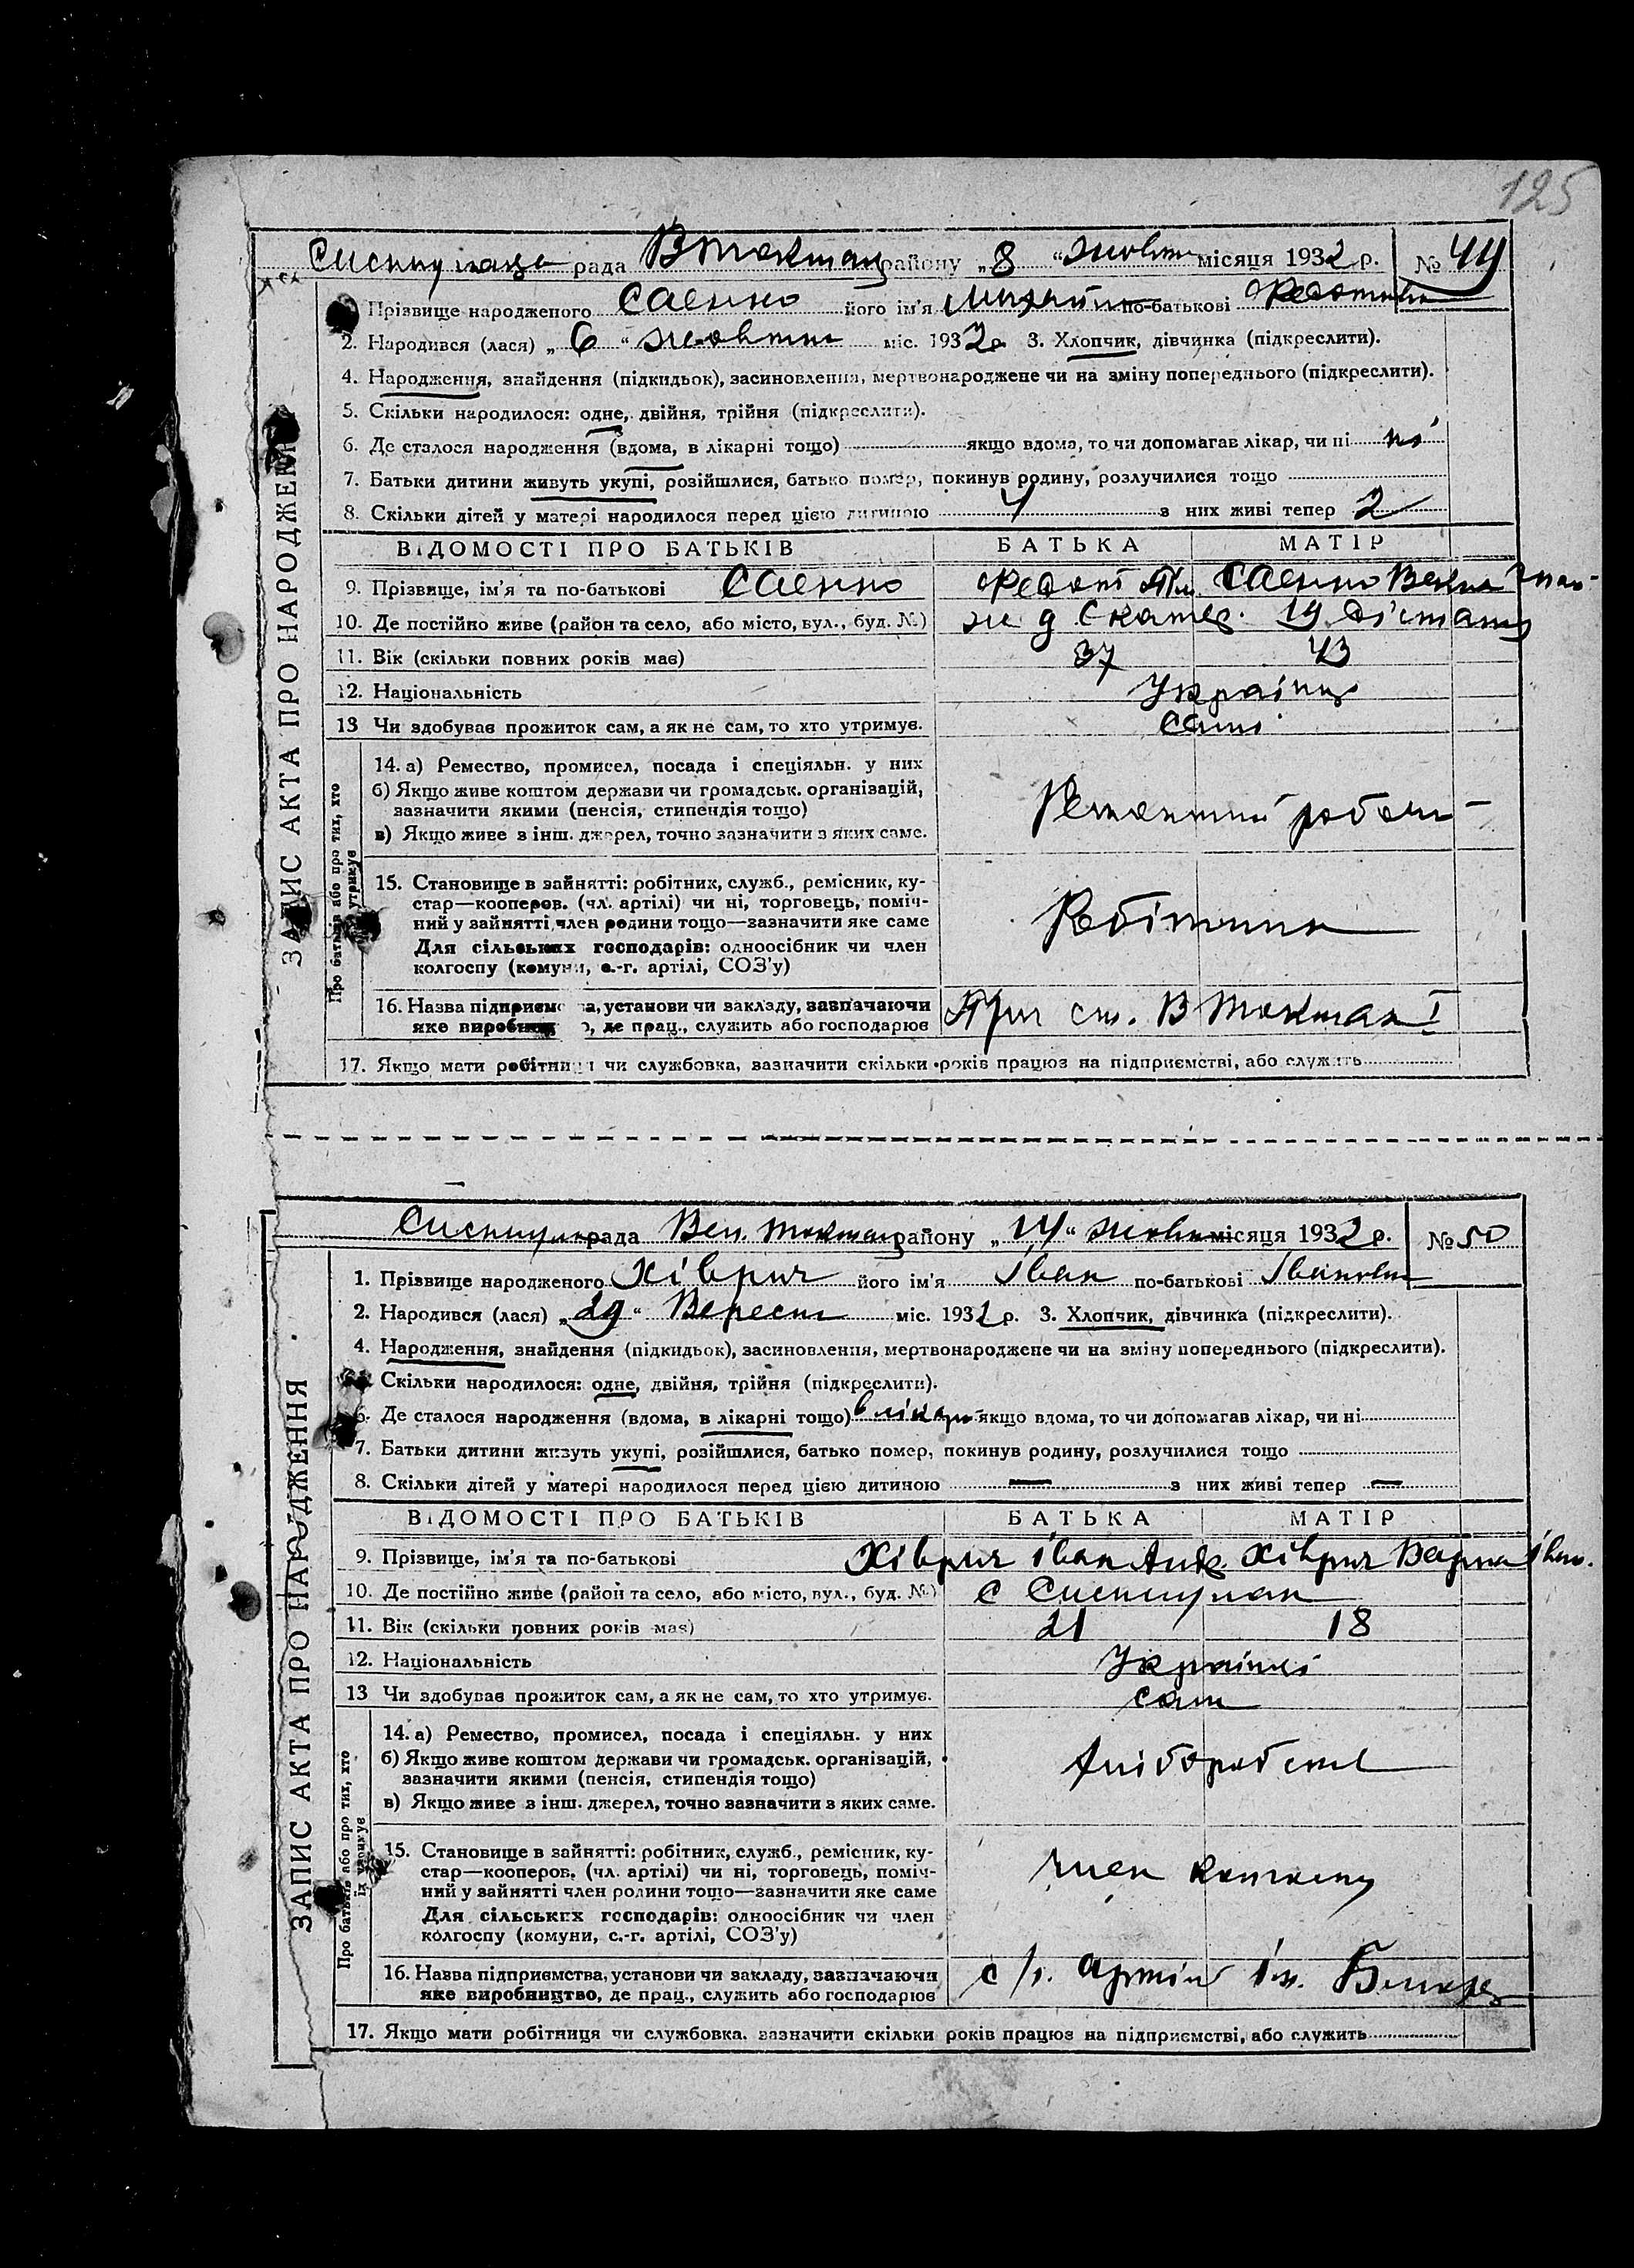 125
рада району „8“ місяця 1932 р. №
Прізвище народженого Саенко його ім'я по-батькові
2. Народився (лася) „6“ міс. 1932 р. 3. Хлопчик, дівчинка (підкреслити).
4. Народження, знайдення (підкидьок), засиновлення, мертвонароджене чи на зміну попереднього (підкреслити).
5. Скільки народилося: одне, двійня, трійня (підкреслити).
6. Де сталося народження (вдома, в лікарні тощо) якщо вдома, то чи допомагав лікар, чи ні ні
7. Батьки дитини живуть укупі, розійшлися, батько помер, покинув родину, розлучилися тощо
8. Скільки дітей у матері народилося перед цією дитиною 4 з них живі тепер 2
ВІДОМОСТІ ПРО БАТЬКІВ БАТЬКА МАТІР
9. Прізвище, ім'я та по-батькові Саенко Федот Саенко
10. Де постійно живе (район та село, або місто, вул., буд. №)
11. Вік (скільки повних років має) 37 43
12. Національність Українці
13 Чи здобуває прожиток сам, а як не сам, то хто утримує. самі
14. а) Ремество, промисел, посада і спеціяльн. у них
б) Якщо живе коштом держави чи громадськ. організацій,
зазначити якими (пенсія, стипендія тощо)
в) Якщо живе з інш. джерел, точно зазначити з яких саме.
15. Становище в зайнятті: робітник, служб., ремісник, ку-
стар—кооперов. (чл. артілі) чи ні, торговець, поміч-
ний у зайнятті член родини тощо—зазначити яке саме
Для сільських господарів: одноосібник чи член
колгоспу (комуни, с.-г. артілі, СОЗ'у)
Робітник
16. Назва підприємства, установи чи закладу, зазначаючи
яке виробництво, де прац., служить або господарює
ст. В Токмак I
17. Якщо мати робітниця чи службовка, зазначити скільки років працює на підприємстві, або служить
ЗАПИС АКТА ПРО НАРОДЖЕННЯ
Про батьків або про тих, хто
їх утримує
рада Вел. Токмац району „14“ місяця 1932 р. № 50
1. Прізвище народженого Хіврич його ім'я Іван по-батькові Іванович
2. Народився (лася) „29“ Вересня міс. 1932 р. 3. Хлопчик, дівчинка (підкреслити).
4. Народження, знайдення (підкидьок), засиновлення, мертвонароджене чи на зміну попереднього (підкреслити).
Скільки народилося: одне, двійня, трійня (підкреслити).
6. Де сталося народження (вдома, в лікарні тощо) в лікарн якщо вдома, то чи допомагав лікар, чи ні
7. Батьки дитини живуть укупі, розійшлися, батько помер, покинув родину, розлучилися тощо
8. Скільки дітей у матері народилося перед цією дитиною — з них живі тепер —
ВІДОМОСТІ ПРО БАТЬКІВ БАТЬКА МАТІР
9. Прізвище, ім'я та по-батькові Хіврич Іван Хіврич Іван.
10. Де постійно живе (район та село, або місто, вул., буд. №) с
11. Вік (скільки повних років має) 21 18
12. Національність Українці
13 Чи здобуває прожиток сам, а як не сам, то хто утримує. сам
14. а) Ремество, промисел, посада і спеціяльн. у них
б) Якщо живе коштом держави чи громадськ. організацій,
зазначити якими (пенсія, стипендія тощо)
в) Якщо живе з інш. джерел, точно зазначити з яких саме.
15. Становище в зайнятті: робітник, служб., ремісник, ку-
стар—кооперов. (чл. артілі) чи ні, торговець, поміч-
ний у зайнятті член родини тощо—зазначити яке саме
Для сільських господарів: одноосібник чи член
колгоспу (комуни, с.-г. артілі, СОЗ'у)
член колгоспу
16. Назва підприємства, установи чи закладу, зазначаючи
яке виробництво, де прац., служить або господарює
с/г. артіль ім.
17. Якщо мати робітниця чи службовка, зазначити скільки років працює на підприємстві, або служить
ЗАПИС АКТА ПРО НАРОДЖЕННЯ
Про батьків або про тих, хто
їх утримує